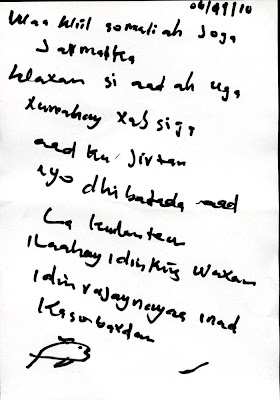 06/09/10
Waa Kiil somaliah Joga
Jarmalka
Waxan si aad ah uga
xumahay xabsiga
aad ku jirtan
ayo dhibatada aad
La kulanteen
ILaahay idinkiis waxan
idin rajaynayaa inad
Kaga baxdan